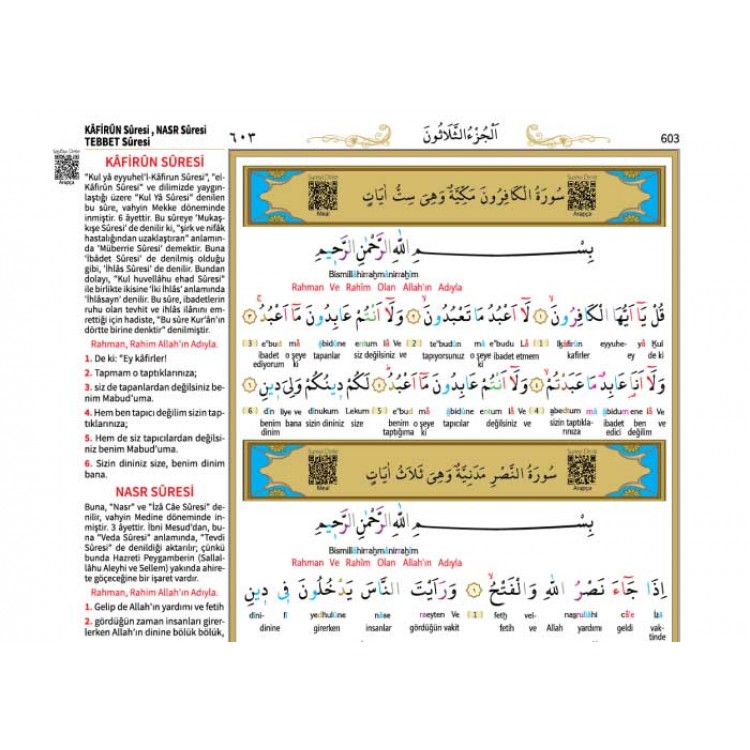 KÂFİRÛN Sûresi , NASR Sûresi
TEBBET Sûresi
٦٠٣
اَلْجُزْءُ الثَّلَاثُونَ
603
Arapça
KÂFİRÛN SÛRESİ
"Kul yâ eyyuhe'l-Kâfirun Sûresi", "el-
Kâfirûn Sûresi" ve dilimizde yaygın-
laştığı üzere "Kul Yâ Sûresi" denilen
bu sûre, vahyin Mekke döneminde
inmiştir. 6 âyettir. Bu sûreye 'Mukaş-
kışe Sûresi' de denilir ki, "şirk ve nifâk
hastalığından uzaklaştıran" anlamın-
da 'Müberrie Sûresi' demektir. Buna
'İbâdet Sûresi' de denilmiş olduğu
gibi, 'İhlâs Sûresi' de denilir. Bundan
dolayı, "Kul huvellâhu ehad Sûresi"
ile birlikte ikisine 'İki İhlâs' anlamında
'İhlâsayn' denilir. Bu sûre, ibadetlerin
ruhu olan tevhit ve ihlâs ilânını em-
rettiği için hadiste, "Bu sûre Kur'ân'ın
dörtte birine denktir" denilmiştir.
Rahman, Rahim Allah'ın Adıyla.
1. De ki: "Ey kâfirler!
2. Tapmam o taptıklarınıza;
3. siz de tapanlardan değilsiniz be-
nim Mabud'uma.
4. Hem ben tapıcı değilim sizin tap-
tıklarınıza;
5. Hem de siz tapıcılardan değilsi-
niz benim Mabud'uma.
6. Sizin dininiz size, benim dinim
bana.
NASR SÛRESİ
Buna, "Nasr" ve "İzâ Câe Sûresi" de-
nilir, vahyin Medine döneminde in-
miştir. 3 âyettir. İbni Mesud'dan, bu-
na "Veda Sûresi" anlamında, "Tevdi
Sûresi" de denildiği aktarılır; çünkü
bunda Hazreti Peygamberin (Sallal-
lâhu Aleyhi ve Sellem) yakında ahire-
te göçeceğine bir işaret vardır.
Rahman, Rahim Allah'ın Adıyla.
1. Gelip de Allah'ın yardımı ve fetih
2. gördüğün zaman insanları girer-
lerken Allah'ın dinine bölük bölük,
سُورَةُ الْكَافِرُونَ مَكِّيَّةٌ وَهِيَ سِتُّ اٰيَاتٍ
Meal
Arapça
بِسْمِ اللّٰهِ الرَّحْمٰنِ الرَّحِيمِ
Bismillâhirraḥmânirraḥîm
Rahman Ve Rahîm Olan Allah'ın Adıyla
قُلْ يَٓا اَيُّهَا الْكَافِرُونَۙ ﴿١﴾ لَٓا اَعْبُدُ مَا تَعْبُدُونَۙ ﴿٢﴾ وَلَٓا اَنْتُمْ عَابِدُونَ مَٓا اَعْبُدُۚ ﴿٣﴾
(3) e'bud mâ âbidûne entum Lâ Ve (2) te'budûn mâ e'budu Lâ (1) lkâfirûn eyyuhe- yâ Kul
ibadet o şeye tapanlar siz değilsiniz ve tapıyorsunuz o şeye ibadet etmem kafirler ey de ki
ediyorum ki ki
وَلَٓا اَنَا۬ عَابِدٌ مَا عَبَدْتُمْۙ ﴿٤﴾ وَلَٓا اَنْتُمْ عَابِدُونَ مَٓا اَعْبُدُۜ ﴿٥﴾ لَكُمْ دِينُكُمْ وَلِيَ دِينِ ﴿٦﴾
(6) dîn liye ve dînukum Lekum (5) e'bud mâ âbidûne entum lâ Ve (4) abedtum mâ âbidum ene lâ Ve
benim bana sizin dininiz size benim o şeye tapıcılar değilsiniz ve sizin taptıkla- tapıcı ben değilim ve
dinim taptığıma ki rınıza
سُورَةُ النَّصْرِ مَدَنِيَّةٌ وَهِيَ ثَلَاثُ اٰيَاتٍ
Meal
Arapça
بِسْمِ اللّٰهِ الرَّحْمٰنِ الرَّحِيمِ
Bismillâhirraḥmânirraḥîm
Rahman Ve Rahîm Olan Allah'ın Adıyla
اِذَا جَٓاءَ نَصْرُ اللّٰهِ وَالْفَتْحُۙ ﴿١﴾ وَرَاَيْتَ النَّاسَ يَدْخُلُونَ فٖى دٖينِ
dîni- fî yedhulûne nâse raeyten Ve (1) fetḥ vel- naṣrullâhi câ'e İzâ
dinine girerken insanlar gördüğün vakit fetih ve Allah yardımı geldi vak-
tinde